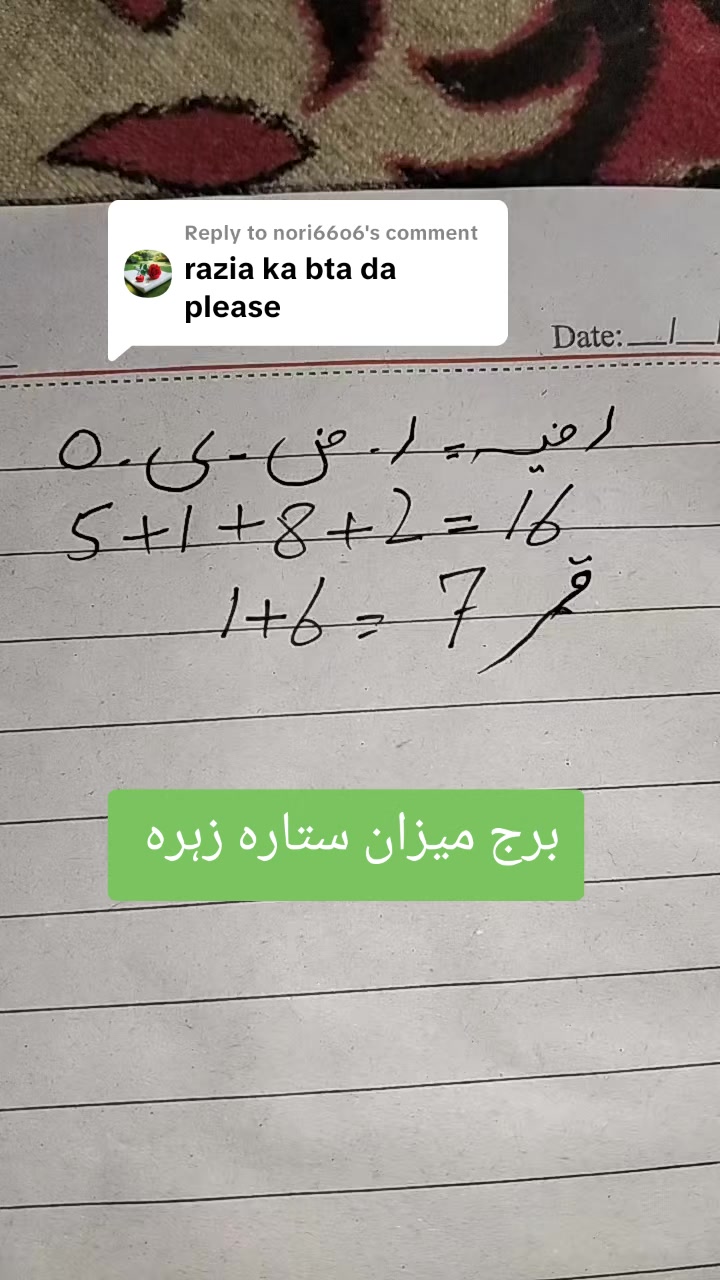 Reply to nori66o6's comment
razia ka bta da
please
Date:__/__/
رضیہ = ر . ض - ی . ہ
5+1+8+2=16
1+6=7 قمر
برج میزان ستارہ زہرہ